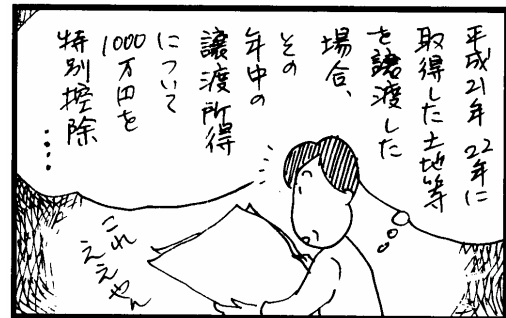 平成21年 22年に
取得した土地等
を譲渡した
場合、
その
年中の
譲渡所得
について
1000
万円を
特別控除
・・・・
これ
ええやん